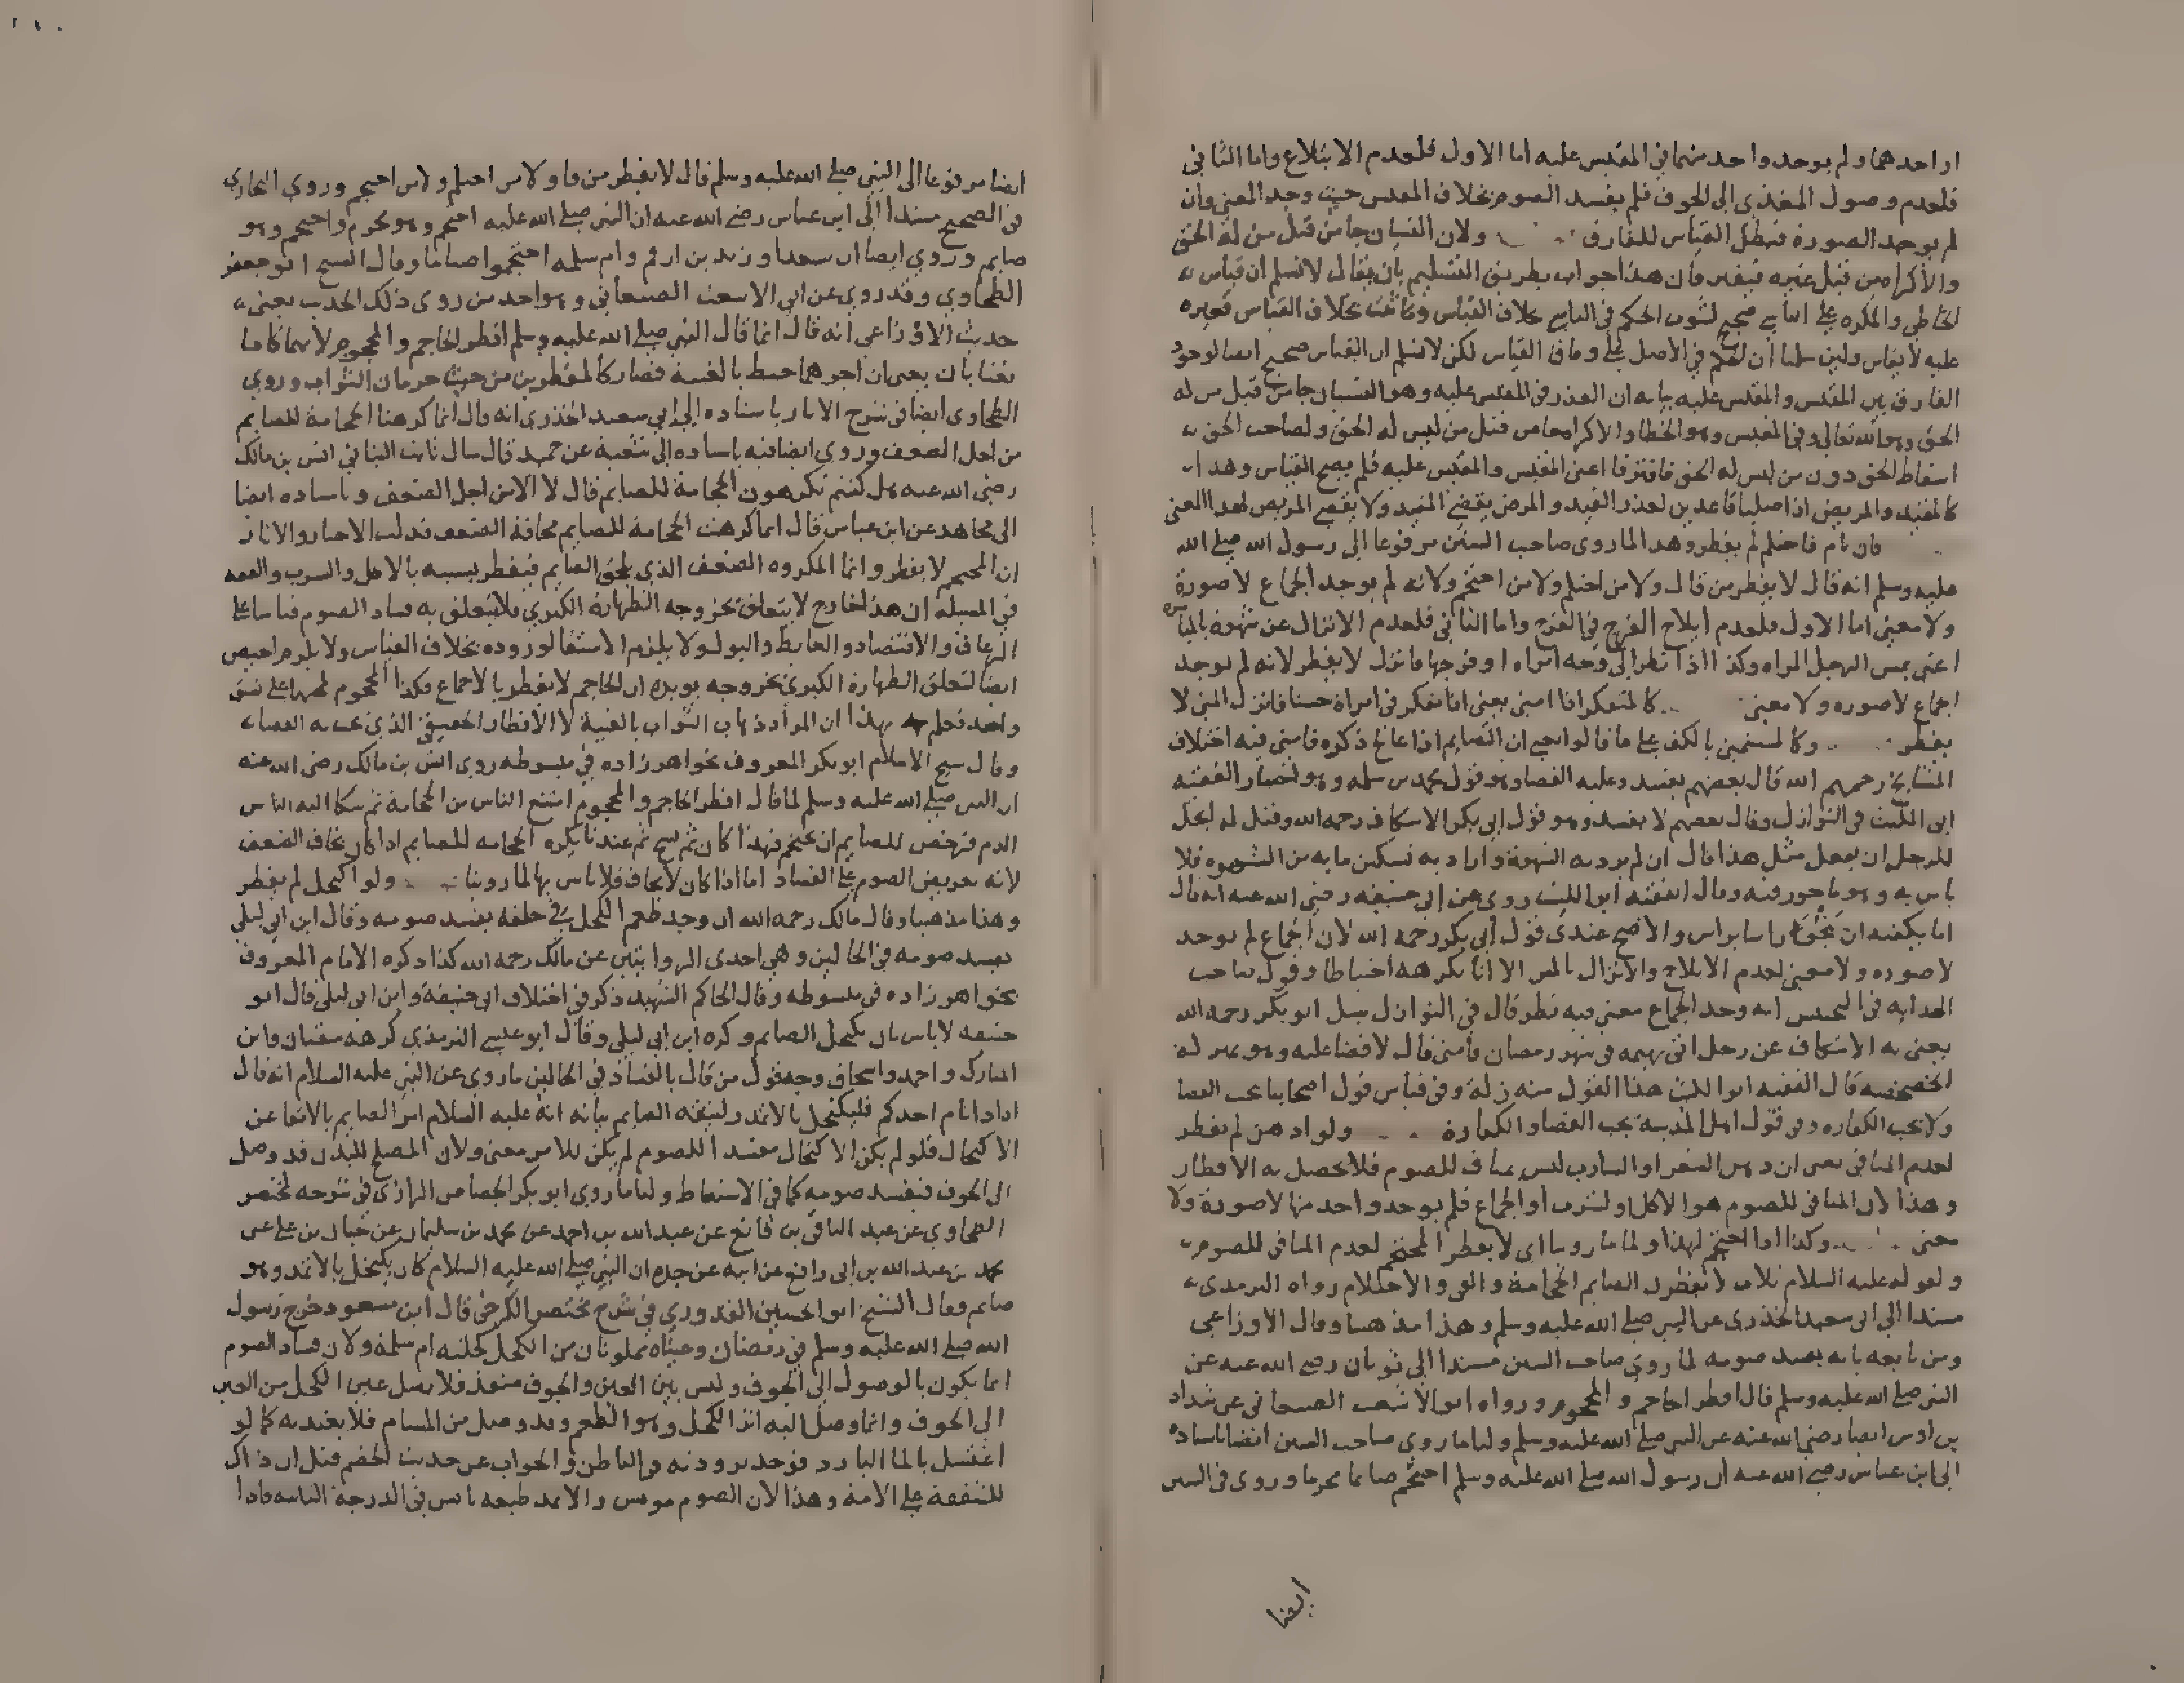 او احدهما ولم يوجد واحد منهما في المقيس عليه اما الاول فلعدم الابتلاع واما الثاني
فلعدم وصول المغذي الى الجوف فلم يفسد الصوم بخلاف المقيس حيث وجد المعنى وان
لم يوجد الصورة فبطل القياس للفارق ولان النسيان جا من قبل من له الحق
والاكراه من قبل غيره فيفترقان هذا جواب بطريق التسليم بان يقال لا نسلم ان قياس
الخاطي والمكره على الناسي صحيح لثبوت الحكم في الناسي بخلاف القياس وما ثبت بخلاف القياس فغيره
عليه لا يقاس ولين سلمنا ان الحكم في الاصل على وفاق القياس لكن لا نسلم ان القياس صحيح ايضا لوجود
الفارق بين المقيس والمقيس عليه بيانه ان العذر في المقيس عليه وهو النسيان جا من قبل من له
الحق وهو الله تعالى وفي المقيس وهو الخطا والاكراه جا من قبل من ليس له الحق ولصاحب الحق
اسقاط الحق دون من ليس له الحق فافترقا اعني المقيس والمقيس عليه فلم يصح القياس وهذا
كالمقيد والمريض اذا صليا قاعدين لعذر القيد والمرض يقضي المقيد ولا يقضي المريض لهذا المعنى
فان نام فاحتلم لم يفطر وهذا لما روى صاحب السنن مرفوعا الى رسول الله صلى الله
عليه وسلم انه قال لا يفطر من قاء ولا من احتلم ولا من احتجم ولانه لم يوجد الجماع لا صورة
ولا معنى اما الاول فلعدم ايلاج الفرج في الفرج واما الثاني فلعدم الانزال عن شهوة بالمباشرة
اعني بمس الرجل المراه وكذا اذا نظر الى وجه امراه او فرجها فانزل لا يفطر لانه لم يوجد
الجماع لا صوره ولا معنى كالمتفكر اذا امنى يعني اذا تفكر في امراة حسنا فانزل المني لا
يفطر وكالمستمني بالكف على ما قالوا يعني ان الصايم اذا عالج ذكره فامنى فيه اختلاف
المشايخ رحمهم الله قال بعضهم يفسد وعليه القضا وهو قول محمد بن سلمه وهو اختيار الفقيه
ابي الليث في النوازل وقال بعضهم لا يفسد وهو قول ابي بكر الاسكاف رحمه الله وقيل له ايحل
للرجل ان يفعل مثل هذا قال ان لم يرد به الشهوة واراد به تسكين ما به من الشهوه فلا
باس به وهو ماجور فيه وقال الفقيه ابو الليث روي عن ابي حنيفه رضي الله عنه انه قال
اما يكفيه ان ينجو راسا براس والاصح عندي قول ابي بكر رحمه الله لان الجماع لم يوجد
لا صوره ولا معنى لعدم الايلاج والانزال بالمس الا انا نكرهه احتياطا وقول صاحب
الهدايه في التجنيس انه وجد الجماع معنى فيه نظر قال في النوازل سيل ابو بكر رحمه الله
يعني به الاسكاف عن رجل اتى بهيمه في شهر رمضان فامنى قال لا قضا عليه وهو بمنزلة
الخضخضه قال الفقيه ابو الليث هذا القول منه زلة وفي قياس قول اصحابنا يجب القضا
ولا تجب الكفاره وفي قول اهل المدينة يجب القضا والكفارة ولو ادهن لم يفطر
لعدم المنافي يعني ان دهن الشعر او الشارب ليس بمناف للصوم فلا يحصل به الافطار
وهذا لان المنافي للصوم هو الاكل والشرب او الجماع فلم يوجد واحد منها لا صورة ولا
معنى وكذا اذا احتجم لهذا ولما روينا اي لا يفطر المحتجم لعدم المنافي للصوم
ولقوله عليه السلام ثلاث لا يفطرن الصايم الحجامة والقي والاحتلام رواه الترمذي
مسندا الى ابي سعيد الخذري عن النبي صلى الله عليه وسلم وهذا مذهبنا وقال الاوزاعي
ومن تابعه بانه يفسد صومه لما روى صاحب السنن مسندا الى ثوبان رضي الله عنه عن
النبي صلى الله عليه وسلم قال افطر الحاجم والمحجوم ورواه ابو الاشعث الصنعاني عن شداد
بن اوس ايضا رضي الله عنه عن النبي صلى الله عليه وسلم ولنا ما روى صاحب السنن ايضا باسناده
الى ابن عباس رضي الله عنه ان رسول الله صلى الله عليه وسلم احتجم صائما محرما وروى في السنن
ايضا
ايضا مرفوعا الى النبي صلى الله عليه وسلم قال لا يفطر من قاء ولا من احتلم ولا من احتجم وروى البخاري
في الصحيح مسندا الى ابن عباس رضي الله عنه ان النبي صلى الله عليه احتجم وهو محرم واحتجم وهو
صايم وروي ايضا ان سعدا وزيد بن ارقم وام سلمه احتجموا صياما وقال الشيخ ابو جعفر
الطحاوي وقد روي عن ابي الاشعث الصنعاني وهو احد من روى ذلك الحديث يعني
حديث الاوزاعي انه قال انما قال النبي صلى الله عليه وسلم افطر الحاجم والمحجوم لانهما كانا
يغتابان يعني ان اجرهما حبط بالغيبة فصارا كالمفطرين من حيث حرمان الثواب وروى
الطحاوي ايضا في شرح الاثار باسناده الى ابي سعيد الخذري انه قال انما كرهنا الحجامة للصايم
من اجل الضعف وروي ايضا فيه باسناده الى شعبة عن حميد قال سال ثابت البناني انس بن مالك
رضي الله عنه هل كنتم تكرهون الحجامة للصايم قال لا الا من اجل الضعف وباسناده ايضا
الى مجاهد عن ابن عباس قال انما كرهت الحجامة للصايم مخافة الضعف فدلت الاخبار والاثار
ان المحتجم لا يفطر وانما المكروه الضعف الذي يلحق الصايم فيفطر بسببه بالاكل والشرب والفقه
في المسيلة ان هذا خارج لا يتعلق بخروجه الطهارة الكبرى فلا يتعلق به فساد الصوم قياسا على
الرعاف والافتصاد والغايط والبول ولا يلزم الاستقا لوروده بخلاف القياس ولا يلزم الحيض
ايضا لتعلق الطهارة الكبرى بخروجه يويده ان الحاجم لا يفطر بالاجماع فكذا المحجوم لمجيهما على نسق
واحد فعلم بهذا ان المراد ذهاب الثواب بالغيبة لا الافطار الحقيقي الذي يجب به القضاء
وقال شيخ الاسلام ابو بكر المعروف بخواهر زاده في مبسوطه روى انس بن مالك رضي الله عنه
ان النبي صلى الله عليه وسلم لما قال افطر الحاجم والمحجوم امتنع الناس من الحجامة ثم شكا اليه الناس
الدم فرخص للصايم ان يحتجم فهذا كان ثم نسخ ثم عندنا يكره الحجامه للصايم اذا كان يخاف الضعف
لانه تعريض الصوم على الفساد اما اذا كان لا يخاف فلا باس بها لما روينا ولو اكتحل لم يفطر
وهذا مذهبنا وقال مالك رحمه الله ان وجد طعم الكحل في حلقه يفسد صومه وقال ابن ابي ليلى
يفسد صومه في الحالين وهي احدى الروايتين عن مالك رحمه الله كذا ذكره الامام المعروف
بخواهر زاده في مبسوطه وقال الحاكم الشهيد ذكر في اختلاف ابي حنيفة وابن ابي ليلى قال ابو
حنيفه لا باس بان يكتحل الصايم وكره ابن ابي ليلى وقال ابو عيسى الترمذي كرهه سفيان وابن
المبارك واحمد واسحاق وجه قول من قال بالفساد في الحالين ما روي عن النبي عليه السلام انه قال
اذا نام احدكم فليكتحل بالاثمد وليتقه الصايم بيانه انه عليه السلام امر الصايم بالاتقا عن
الاكتحال فلو لم يكن الاكتحال مفسدا للصوم لم يكن للامر معنى ولان المصلح للبدن قد وصل
الى الجوف فيفسد صومه كما في الاستعاط ولنا ما روى ابو بكر الجصاص الرازي في شرحه لمختصر
الطحاوي عن عبد الباقي بن قانع عن عبد الله بن احمد عن محمد بن سليمان عن حبان بن علي عن
محمد بن عبد الله بن ابي رافع عن ابيه عن جده ان النبي صلى الله عليه السلام كان يكتحل بالاثمد وهو
صايم وقال الشيخ ابو الحسين القدوري في شرح مختصر الكرخي قال ابن مسعود خرج رسول
الله صلى الله عليه وسلم في رمضان وعيناه مملوتان من الكحل كحلته ام سلمة ولان فساد الصوم
انما يكون بالوصول الى الجوف وليس بين العين والجوف منفذ فلا يصل عين الكحل من العين
الى الجوف وانما وصل اليه اثر الكحل وهو الطعم وقد وصل من المسام فلا يعتد به كما لو
اغتسل بالما البارد فوجد برودته في الباطن والجواب عن حديث الخصم قيل ان ذاك
للشفقة على الامة وهذا لان الصوم موبس والاثمد طبعه يابس في الدرجة الثانيه فاذا